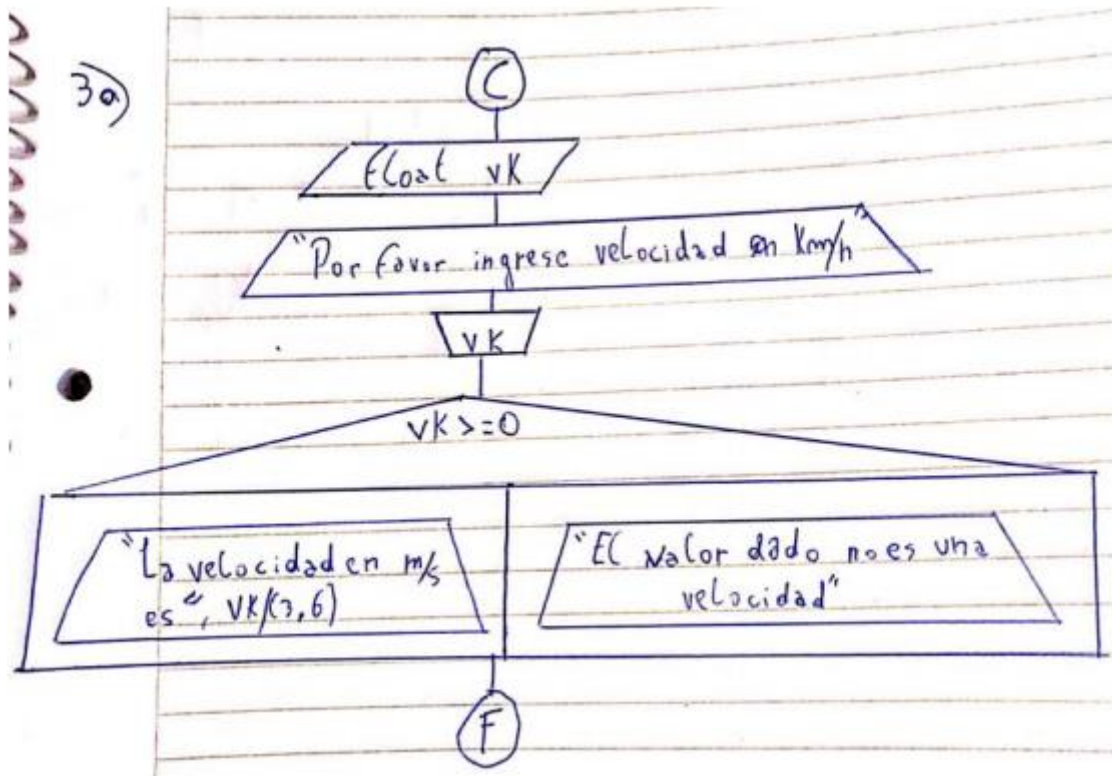 3a)
C
Float vK
"Por favor ingrese velocidad en Km/h"
vK
vK>=0
"La velocidad en m/s
es", VK/(3,6)
"El valor dado no es una
velocidad"
F